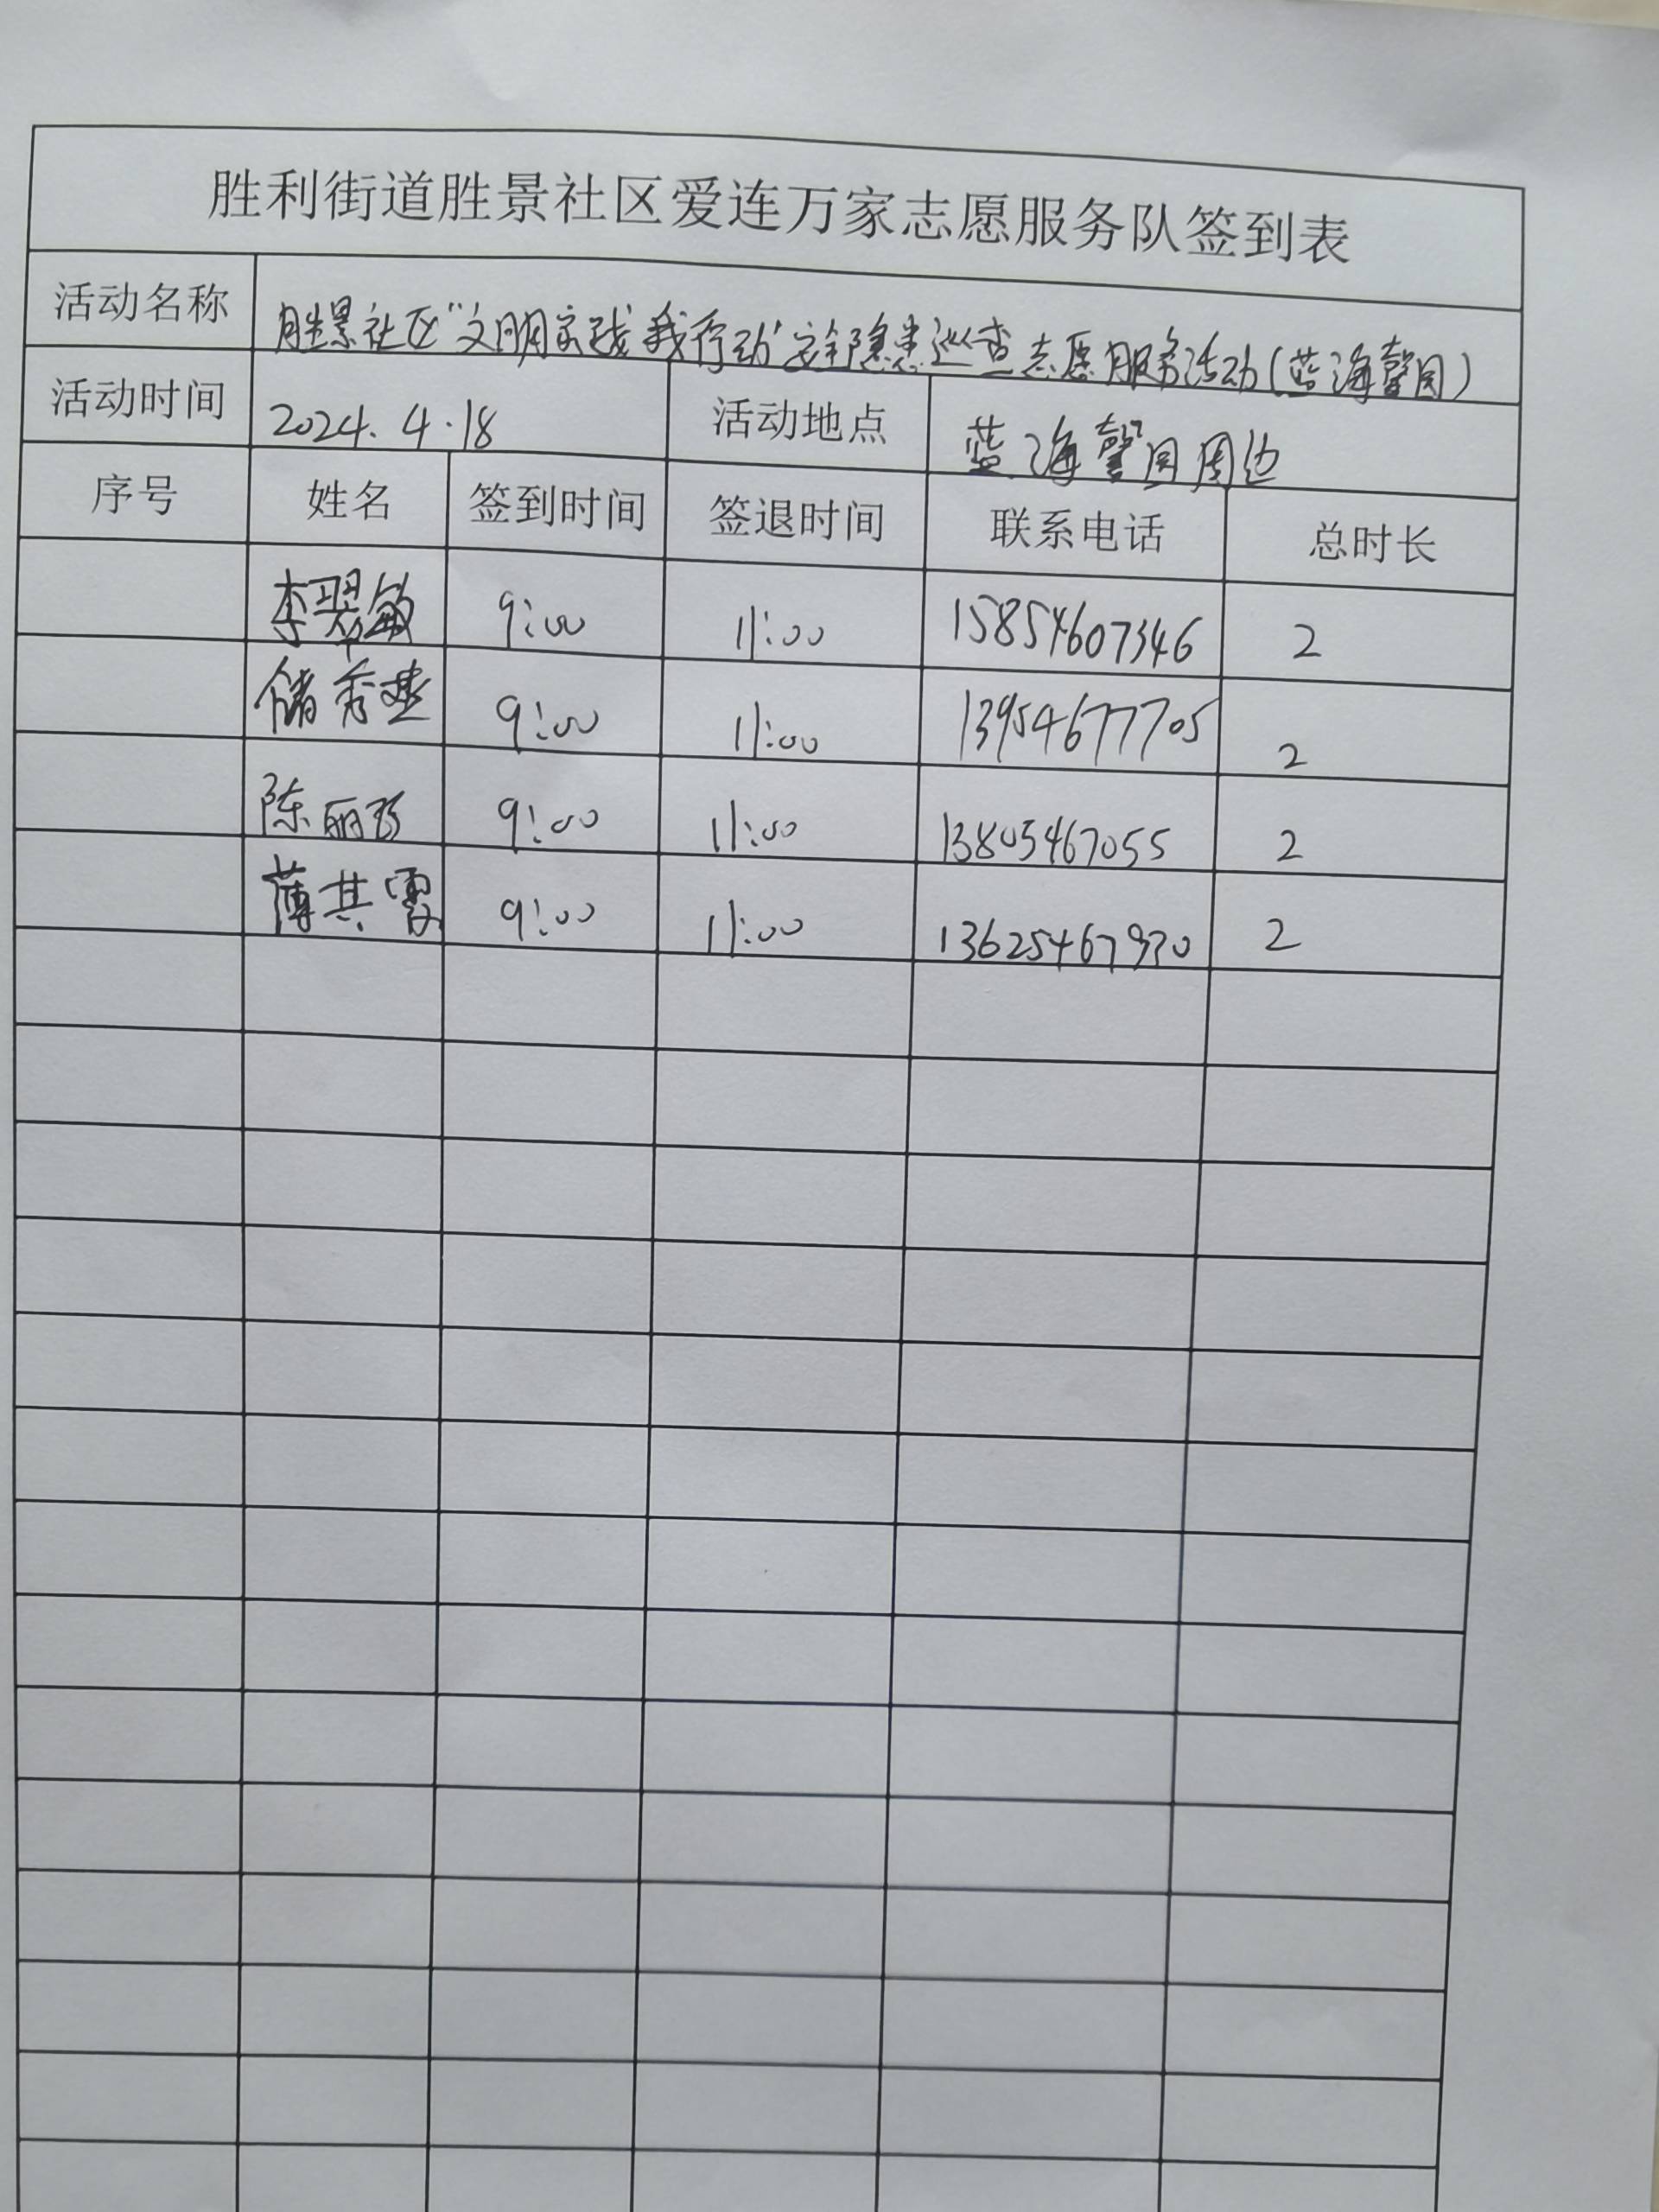 胜利街道胜景社区爱连万家志愿服务队签到表
活动名称 胜景社区“文明实践我行动”安全隐患巡查志愿服务活动(蓝海馨园)
活动时间 2024.4.18 活动地点 蓝海馨园周边
序号 姓名 签到时间 签退时间 联系电话 总时长
李翠敏 9:00 11:00 15854607346 2
储秀 9:00 11:00 13954677705 2
陈丽 9:00 11:00 13805467055 2
薄其霞 9:00 11:00 13625467970 2